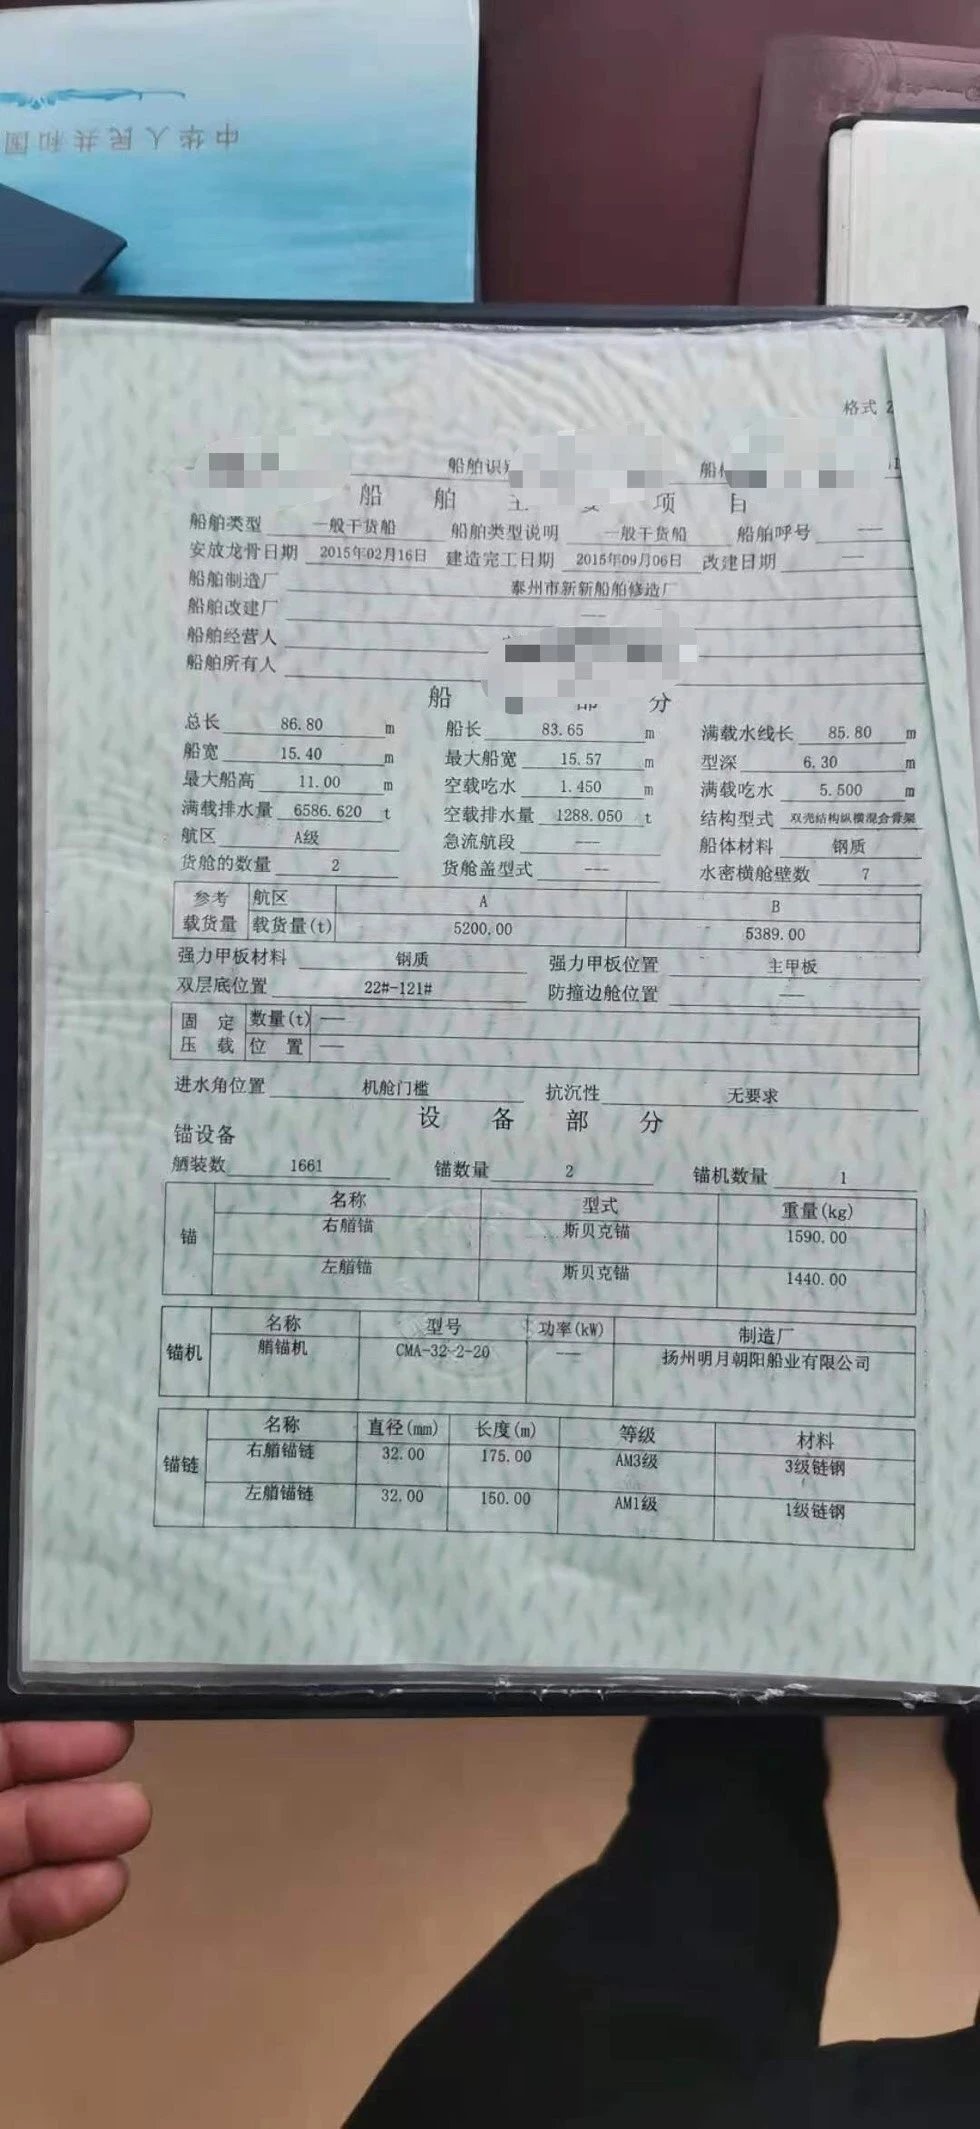 中华人民共和国
格式 2
船舶识 船
船 舶 主 要 项 目
船舶类型 一般干货船 船舶类型说明 一般干货船 船舶呼号 ——
安放龙骨日期 2015年02月16日 建造完工日期 2015年09月06日 改建日期 ——
船舶制造厂 泰州市新新船舶修造厂
船舶改建厂 ——
船舶经营人
船舶所有人
船 部 分
总长 86.80 m 船长 83.65 m 满载水线长 85.80 m
船宽 15.40 m 最大船宽 15.57 m 型深 6.30 m
最大船高 11.00 m 空载吃水 1.450 m 满载吃水 5.500 m
满载排水量 6586.620 t 空载排水量 1288.050 t 结构型式 双壳结构纵横混合骨架
航区 A级 急流航段 —— 船体材料 钢质
货舱的数量 2 货舱盖型式 —— 水密横舱壁数 7
参考载货量 航区 A B
载货量(t) 5200.00 5389.00
强力甲板材料 钢质 强力甲板位置 主甲板
双层底位置 22#-121# 防撞边舱位置 ——
固定压载 数量(t) ——
位置 ——
进水角位置 机舱门槛 抗沉性 无要求
设 备 部 分
锚设备
舾装数 1661 锚数量 2 锚机数量 1
锚 名称 型式 重量(kg)
右艏锚 斯贝克锚 1590.00
左艏锚 斯贝克锚 1440.00
锚机 名称 型号 功率(kW) 制造厂
艏锚机 CMA-32-2-20 —— 扬州明月朝阳船业有限公司
锚链 名称 直径(mm) 长度(m) 等级 材料
右艏锚链 32.00 175.00 AM3级 3级链钢
左艏锚链 32.00 150.00 AM1级 1级链钢